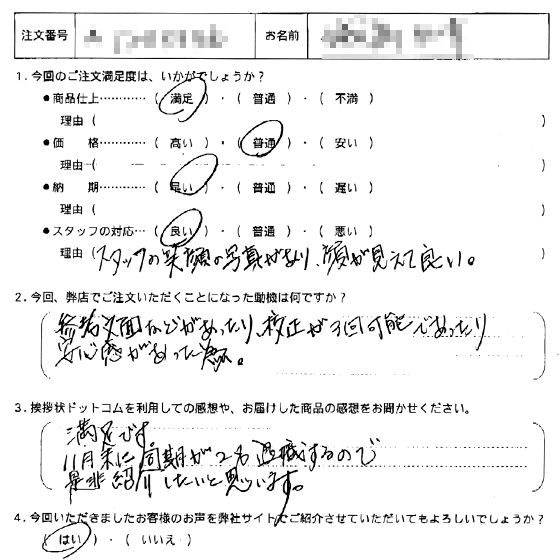 注文番号 お名前
1.今回のご注文満足度は、いかがでしょうか?
●商品仕上…………( 満足 )・( 普通 )・( 不満 )
理由( )
●価　格…………( 高い )・( 普通 )・( 安い )
理由( )
●納　期…………( 早い )・( 普通 )・( 遅い )
理由( )
●スタッフの対応…( 良い )・( 普通 )・( 悪い )
理由(スタッフの笑顔の写真があり、顔が見えて良い。 )
2.今回、弊店でご注文いただくことになった動機は何ですか?
参考文面などがあったり、校正が3回可能であったり
安心感があった為。
3.挨拶状ドットコムを利用しての感想や、お届けした商品の感想をお聞かせください。
満足です
11月末に同期が2名退職するので
是非紹介したいと思います。
4.今回いただきましたお客様のお声を弊社サイトでご紹介させていただいてもよろしいでしょうか?
( はい )・( いいえ )